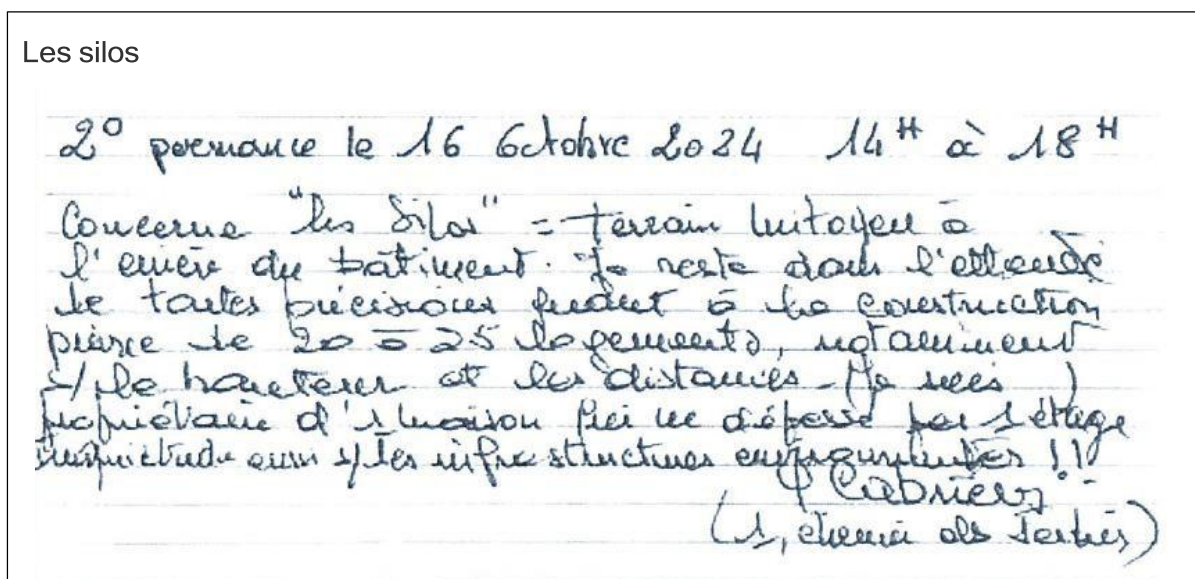 Les silos
2° permanence le 16 Octobre 2024 14H à 18H
Concerne "les Silos" = terrain mitoyen à
l'arrière du bâtiment. Je reste dans l'attente
de toutes précisions quant à la construction
prévue de 20 à 25 logements, notamment
s/ la hauteur et les distances - (Je suis )
propriétaire d'1 maison qui ne dépasse pas 1 étage
Inquiétude aussi s/ les infrastructures !!
(1, chemin des )